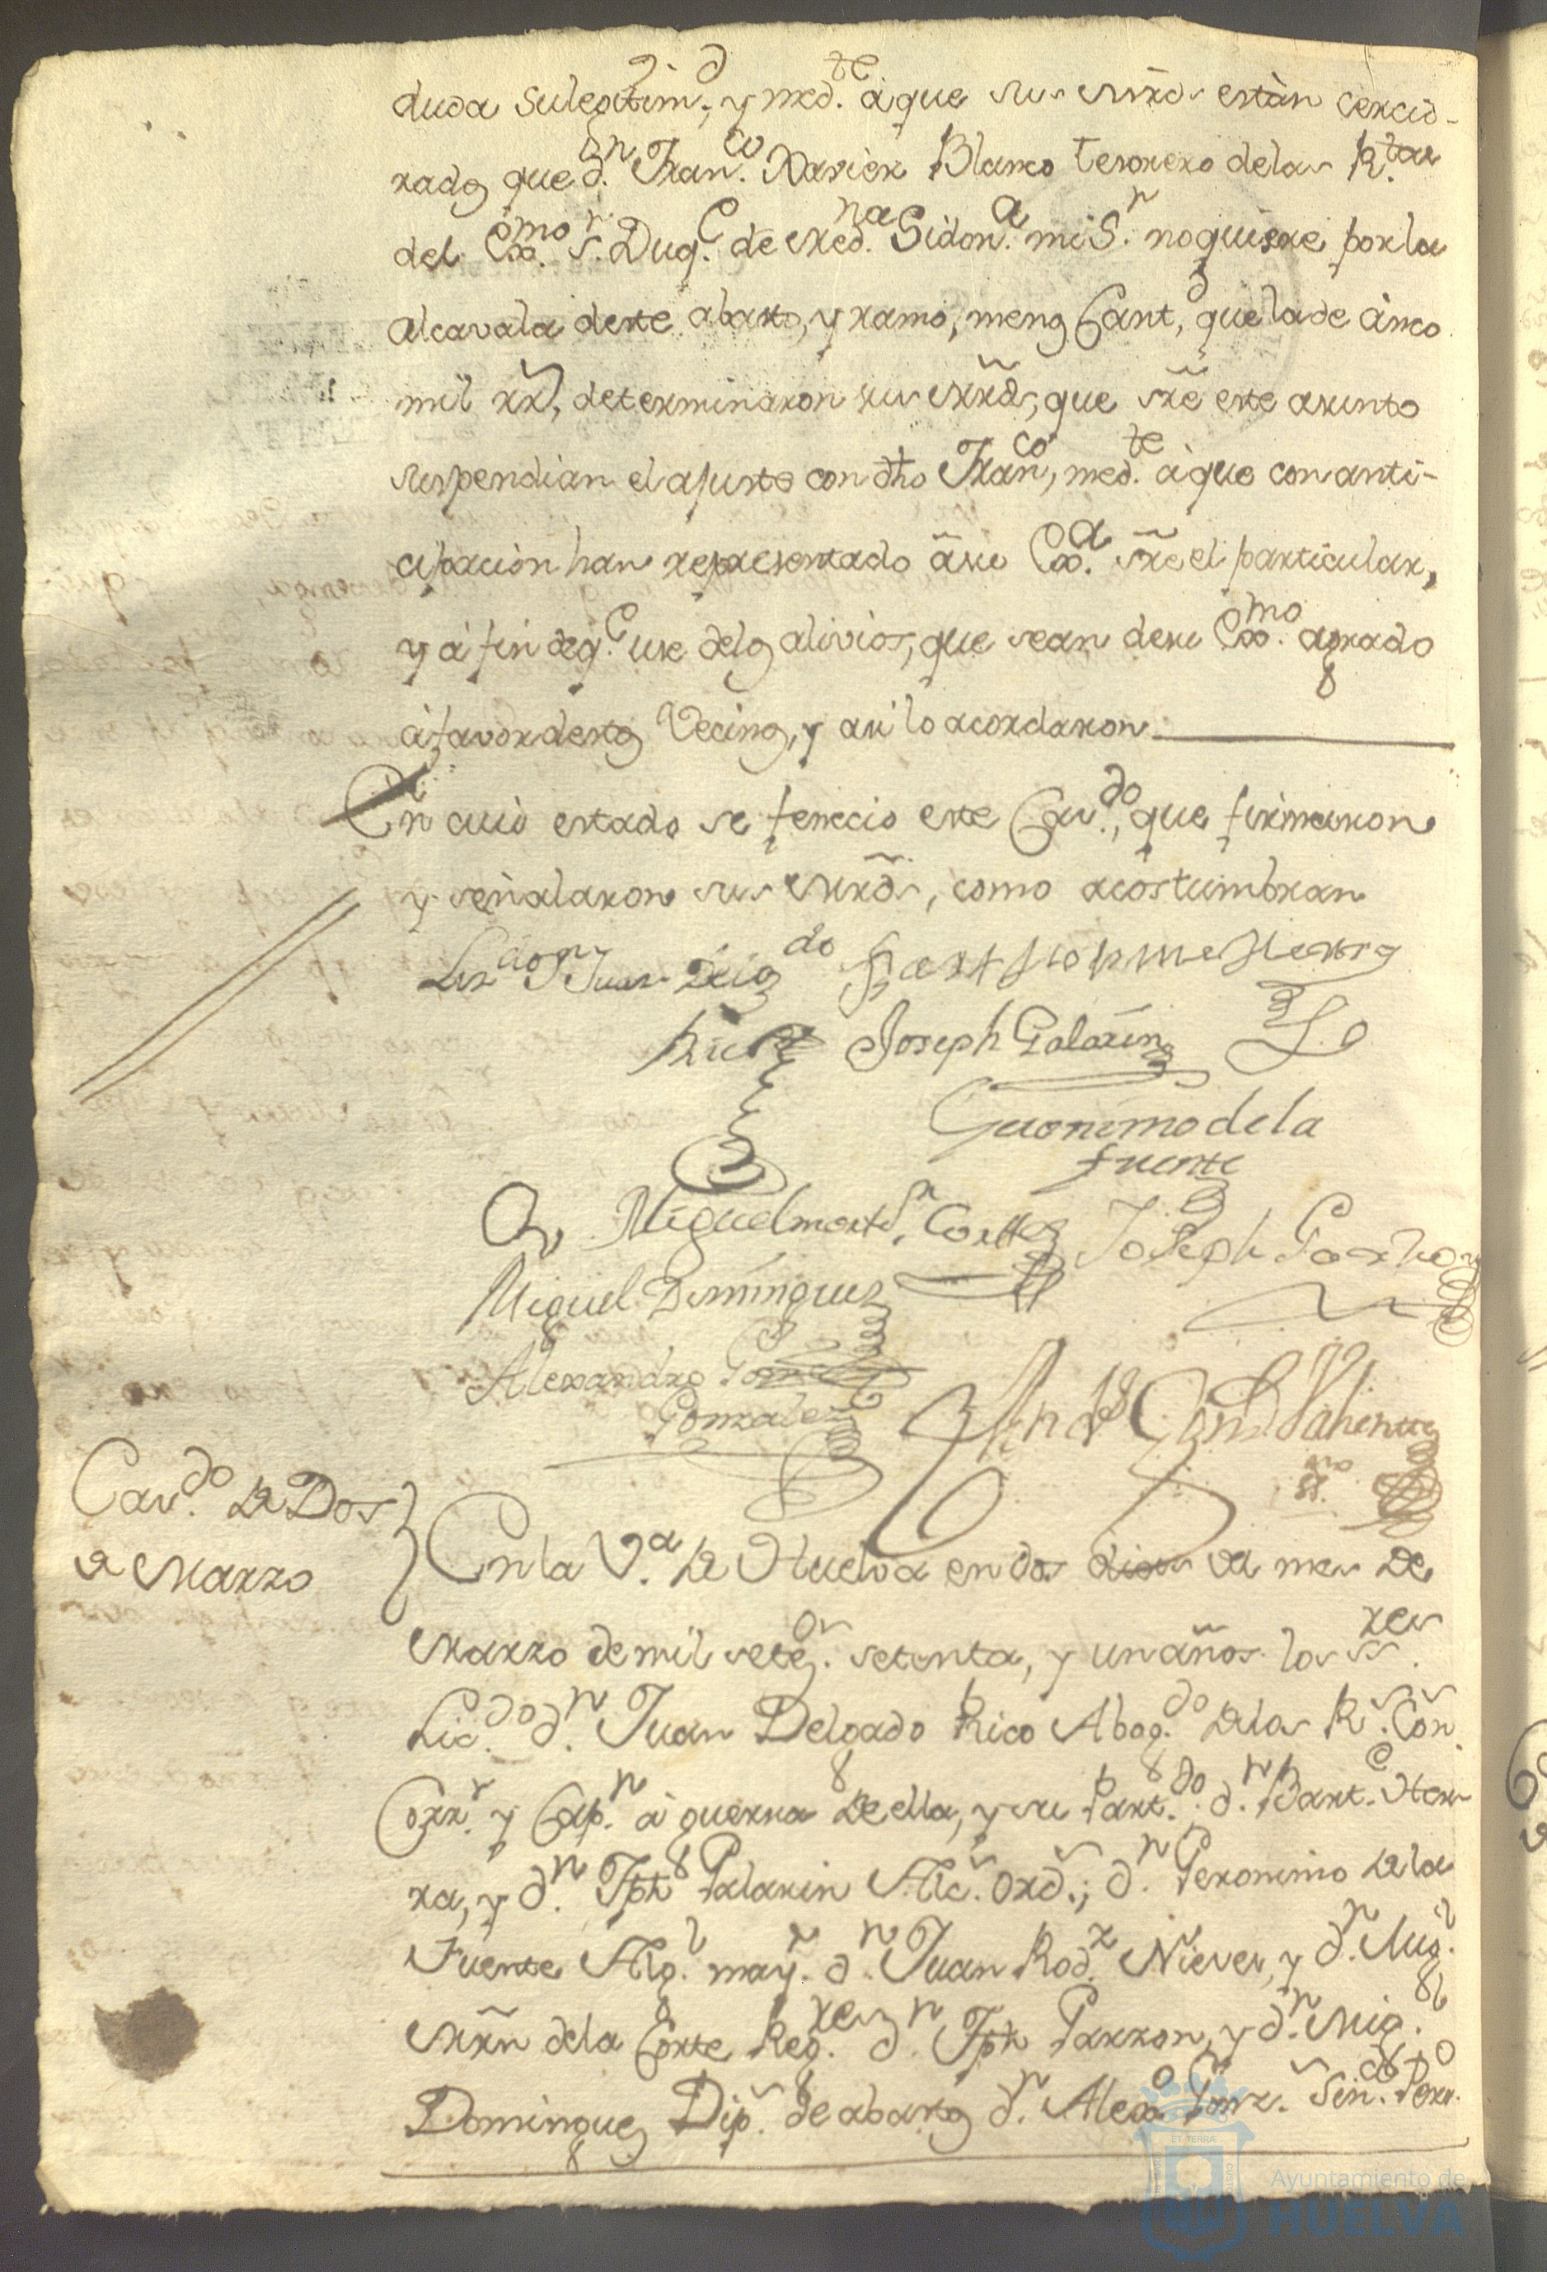 duda sulegitim.d, y med.te à que sus mrds están cercio-
rados que d.n Fran.co Xavier Blanco tesorero delas R.tas
del Exmo. S.r Duq.e de Med.na Sidon.a mi S.r no quiere por la
alcavala deste abasto, y ramo, menos Cant.d, que la de cinco
mil rr.s, determinaron sus mrds, que sre este asunto
suspendian el ajuste con dho Fran.co, med.te à que con anti-
cipacion han representado à su Ex.a sre el particular,
y à fin de q.e use delos alivios, que sean de su Ex.mo agrado
à favor destos Vecinos, y asi lo acordaron
En cuio estado se fenecio este Cav.do, que firmaron
y señalaron sus mrds, como acostumbran
Liz.do D.n Juan Delg.do
Rico
Bartholome Herrera
Joseph Galarin
Geronimo de la
fuente
Miguel mart.n Cortes
Joseph Garzon
Miguel Dominguez
Alexandro
Gonzalez
Cav.do de Dos
de Marzo
En la V.a de Huelva en dos dias del mes de
Marzo de mil setez.os setenta, y un años los ss.res
Lic.do d.n Juan Delgado Rico Abog.do delas R.s Con.
Corr.r y Cap.n à guerra de ella, y su Part.do, d.n Bart.e Herre
ra, y d.n Jph Galarin Alc.s Ord.s; d.n Geronimo dela
Fuente Alg.l may.r d.n Juan Rod.z Nieves, y d.n Mig.l
Mrn dela Corte Reg.res d.n Jph Garzon, y d.n Mig.l
Dominguez Dip.s de abastos d.n Alexo Gonz.s Sin.do Pers.o
ET TERRAE
Ayuntamiento de
HUELVA